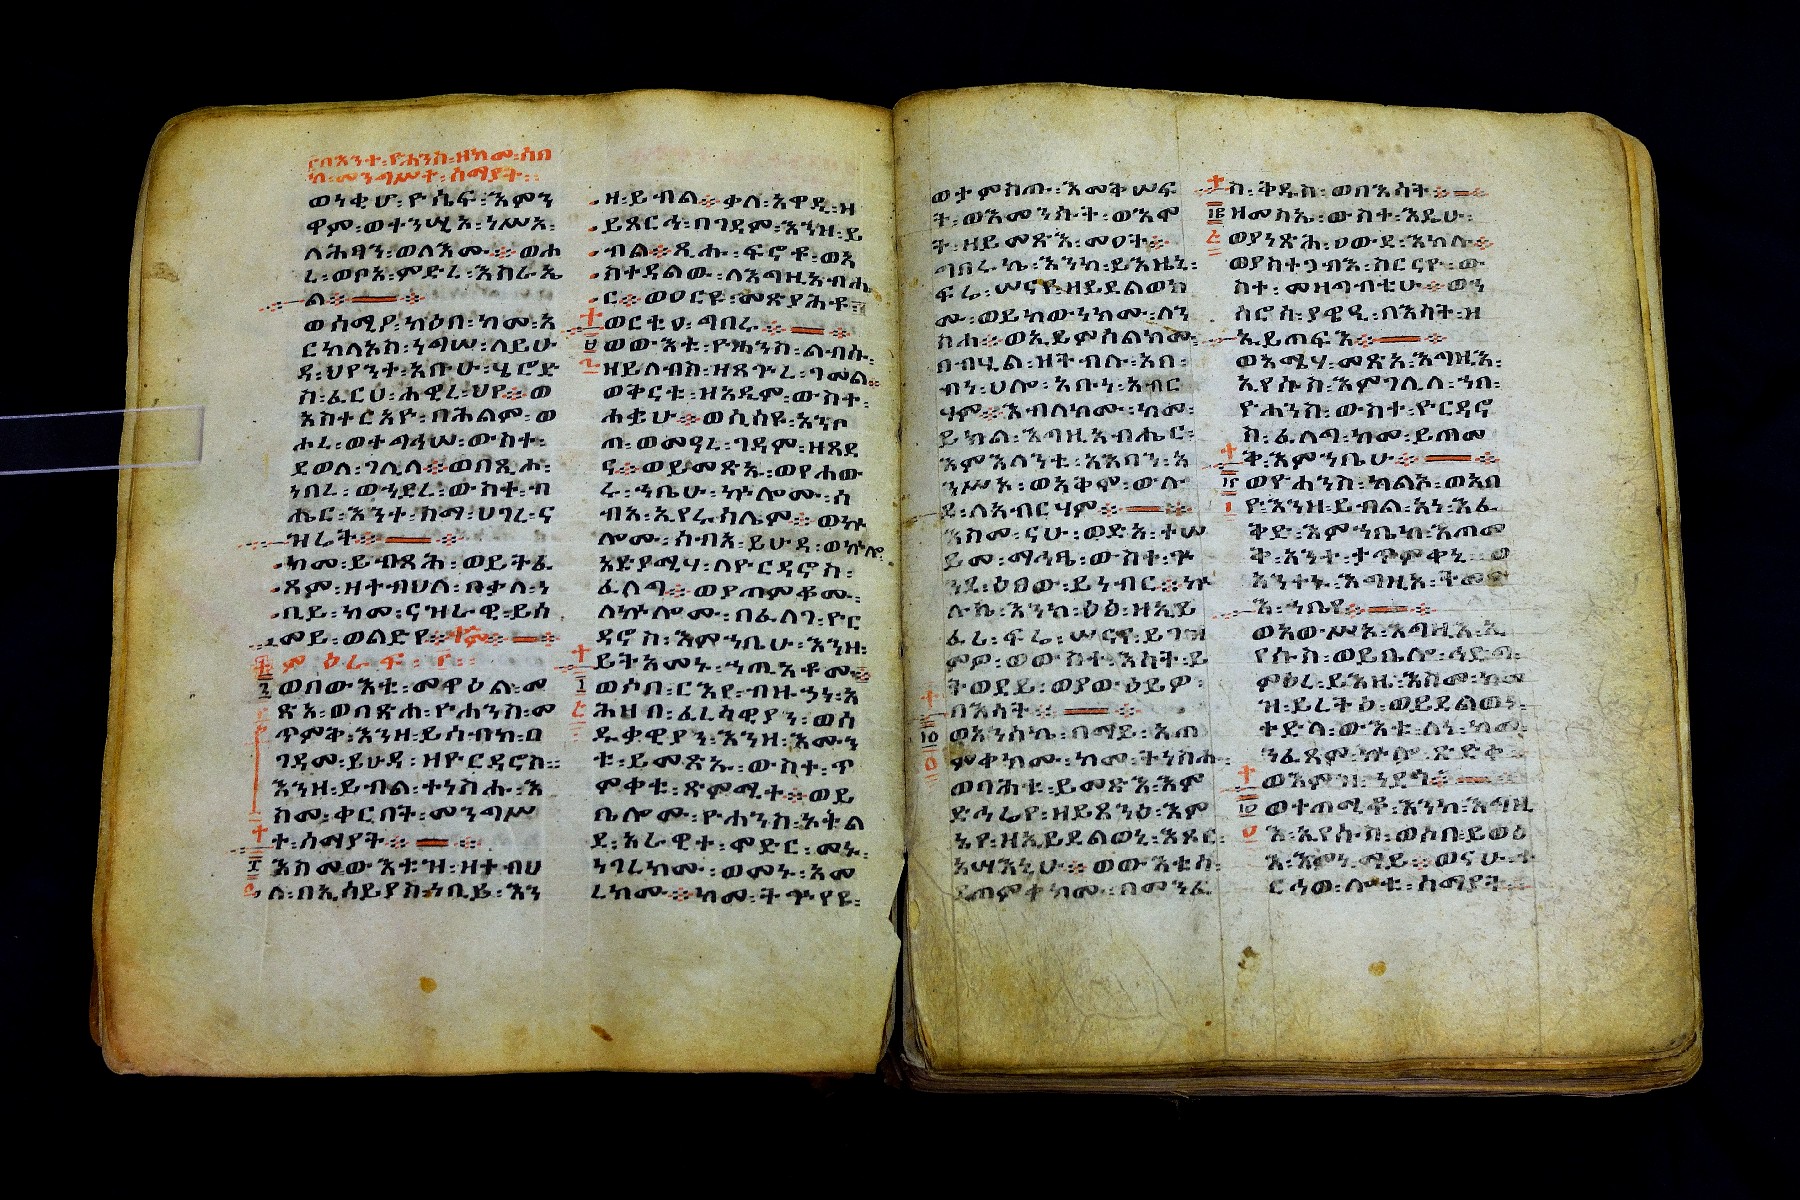 በእንተ፡ዮሐንስ፡ዘከመ፡ሰበ
ከ፡መንግሥተ፡ሰማያት፡፡
ወነቂሆ፡ዮሴፍ፡እምን
ዋም፡ወተንሥአ፡ነሥአ፡
ለሕፃን፡ወለእሙ፡፡ወሐ
ረ፡ወቦአ፡ምድረ፡እስራኤ
ል፡፡
ወሰሚዖ፡ካዕበ፡ከመ፡አ
ርኬላኦስ፡ነግሠ፡ለይሁ
ዳ፡ህየንተ፡አቡሁ፡ሄሮድ
ስ፡ፈርሀ፡ሐዊረ፡ህየ፡፡ወ
አስተርአዮ፡በሕልም፡ወ
ሖረ፡ወተግኅሠ፡ውስተ፡
ደወለ፡ገሊላ፡፡ወበጺሖ፡
ነበረ፡ወኀደረ፡ውስተ፡ብ
ሔር፡እንተ፡ስማ፡ሀገረ፡ና
ዝሬት፡፡
ከመ፡ይብጻሕ፡ወይትፈ
ጸም፡ዘተብህለ፡በቃለ፡ነ
ቢይ፡ከመ፡ናዝራዊ፡ይሰ
መይ፡ወልድየ፡፡
ምዕራፍ፡
ወበውእቱ፡መዋዕል፡መ
ጽአ፡ወበጽሐ፡ዮሐንስ፡መ
ጥምቅ፡እንዘ፡ይሰብክ፡በ
ገዳመ፡ይሁዳ፡ዘዮርዳኖስ፡፡
እንዘ፡ይብል፡ተነስሑ፡እ
ስመ፡ቀርበት፡መንግሥ
ተ፡ሰማያት፡፡
እስመ፡ውእቱ፡ዝ፡ዘተብህ
ለ፡በኢሳይያስ፡ነቢይ፡እን
ዘ፡ይብል፡፡ቃለ፡አዋዲ፡ዘ
ይጸርሕ፡በገዳም፡እንዘ፡ይ
ብል፡፡ጺሑ፡ፍኖቶ፡ወአ
ስተዳልው፡ለእግዚአብሔ
ር፡፡ወዐርዩ፡መጽያሕቶ፡
ወርቱዐ፡ግበሩ፡፡
ወውእቱ፡ዮሐንስ፡ልብሱ፡
ዘይለብስ፡ዘጸጕረ፡ገመል፡፡
ወቅናቱ፡ዘአዲም፡ውስተ፡
ሐቌሁ፡፡ወሲሳዩ፡አንበ
ጣ፡ወመዓረ፡ገዳም፡ዘጸደ
ና፡፡ወይመጽኡ፡ወየሐው
ሩ፡ኀቤሁ፡ኵሎሙ፡ሰ
ብአ፡ኢየሩሳሌም፡፡ወኵ
ሎሙ፡ሰብአ፡ይሁዳ፡ወኵሎ፡
አድያሚሃ፡ለዮርዳኖስ፡
ፈለግ፡፡ወያጠምቆሙ፡
ለኵሎሙ፡በፈለገ፡ዮር
ዳኖስ፡እምኀቤሁ፡እንዘ፡
ይትአመኑ፡ኀጢአቶሙ፡፡
ወሶበ፡ርእየ፡ብዙኃነ፡አ
ሕዛበ፡ፈሪሳዊያን፡ወሰ
ዱቃዊያን፡እንዘ፡እሙን
ቱ፡ይመጽኡ፡ውስተ፡ጥ
ምቀቱ፡ጽምሚተ፡፡ወይ
ቤሎሙ፡ዮሐንስ፡አትል
ደ፡አራዊተ፡ምድር፡መኑ፡
ነገረክሙ፡ወመኑ፡አመ
ረክሙ፡፡ከመ፡ትጕየዩ፡
ወታምስጡ፡እመቅሠፍ
ት፡ወእመንሱት፡ወእሞ
ት፡ዘይመጽእ፡መዐት፡፡
ግበሩኬ፡እንከ፡ይእዜኒ፡
ፍሬ፡ሠናየ፡ዘይደልወክ
ሙ፡ወይከውነክሙ፡ለን
ስሐ፡፡ወኢይምሰልክሙ፡
በብሂል፡ዘትብሉ፡አበ፡
ብነ፡ሀሎ፡አቡነ፡አብር
ሃም፡፡እብለክሙ፡ከመ፡
ይክል፡እግዚአብሔር፡
እምእላንቱ፡አእባን፡አ
ንሥኦ፡ወአቅሞ፡ውሉ
ደ፡ለአብርሃም፡፡
እስመ፡ናሁ፡ወድአ፡ተሠ
ይመ፡ማኅፄ፡ውስተ፡ጕ
ንደ፡ዕፀው፡ይነብር፡፡ኵ
ሉኬ፡እንከ፡ዕፅ፡ዘኢይ
ፈሪ፡ፍሬ፡ሠናየ፡ይገዝ
ምዎ፡ወውስተ፡እሳት፡ይ
ትወደይ፡ወያውዕይዎ፡
በእሳት፡፡
ወአንሰኬ፡በማይ፡አጠ
ምቀክሙ፡ከመ፡ትነስሑ፡
ወባሕቱ፡ይመጽእ፡እም
ድኅሬየ፡ዘይጸንዕ፡እም
ኔየ፡ዘኢይደልወኒ፡እጹር፡
አሣእኒሁ፡፡ወውእቱሰ፡
ያጠምቀክሙ፡በመንፈ
ስ፡ቅዱስ፡ወበእሳት፡፡
ዘመስኡ፡ውስተ፡እዴሁ፡
ወያነጽሕ፡ዐውደ፡እክሉ፡፡
ወያስተጋብእ፡ስርናየ፡ው
ስተ፡መዛግብቲሁ፡፡ወኀ
ሰሮሰ፡ያዌዒ፡በእሳት፡ዘ
ኢይጠፍእ፡፡
ወአሜሃ፡መጽአ፡እግዚእ፡
ኢየሱስ፡እምገሊላ፡ኀበ፡
ዮሐንስ፡ውስተ፡ዮርዳኖ
ስ፡ፈለግ፡ከመ፡ይጠመ
ቅ፡እምኀቤሁ፡፡
ወዮሐንስ፡ከልኦ፡ወአበ
የ፡እንዘ፡ይብል፡አነ፡እፈ
ቅድ፡እምኀቤከ፡እጠመ
ቅ፡አንተ፡ታጥምቀኒ፡፡ወ
አንተኑ፡እግዚእ፡ትመጽ
እ፡ኀቤየ፡፡
ወአውሥአ፡እግዚእ፡ኢ
የሱስ፡ወይቤሎ፡ኅድግ፡
ምዕረ፡ይእዜ፡እስመ፡ከመ
ዝ፡ይረትዕ፡ወይደልወነ፡
ተድላ፡ውእቱ፡ለነ፡ከመ፡
ንፈጽም፡ኵሎ፡ጽድቀ፡፡
ወእምዝ፡ኀደጎ፡፡
ወተጠሚቆ፡እንከ፡እግዚ
እ፡ኢየሱስ፡ወሶበ፡ይወፅ
እ፡እምነ፡ማይ፡፡ወናሁ፡ተ
ርኅወ፡ሎቱ፡ሰማያት፡፡